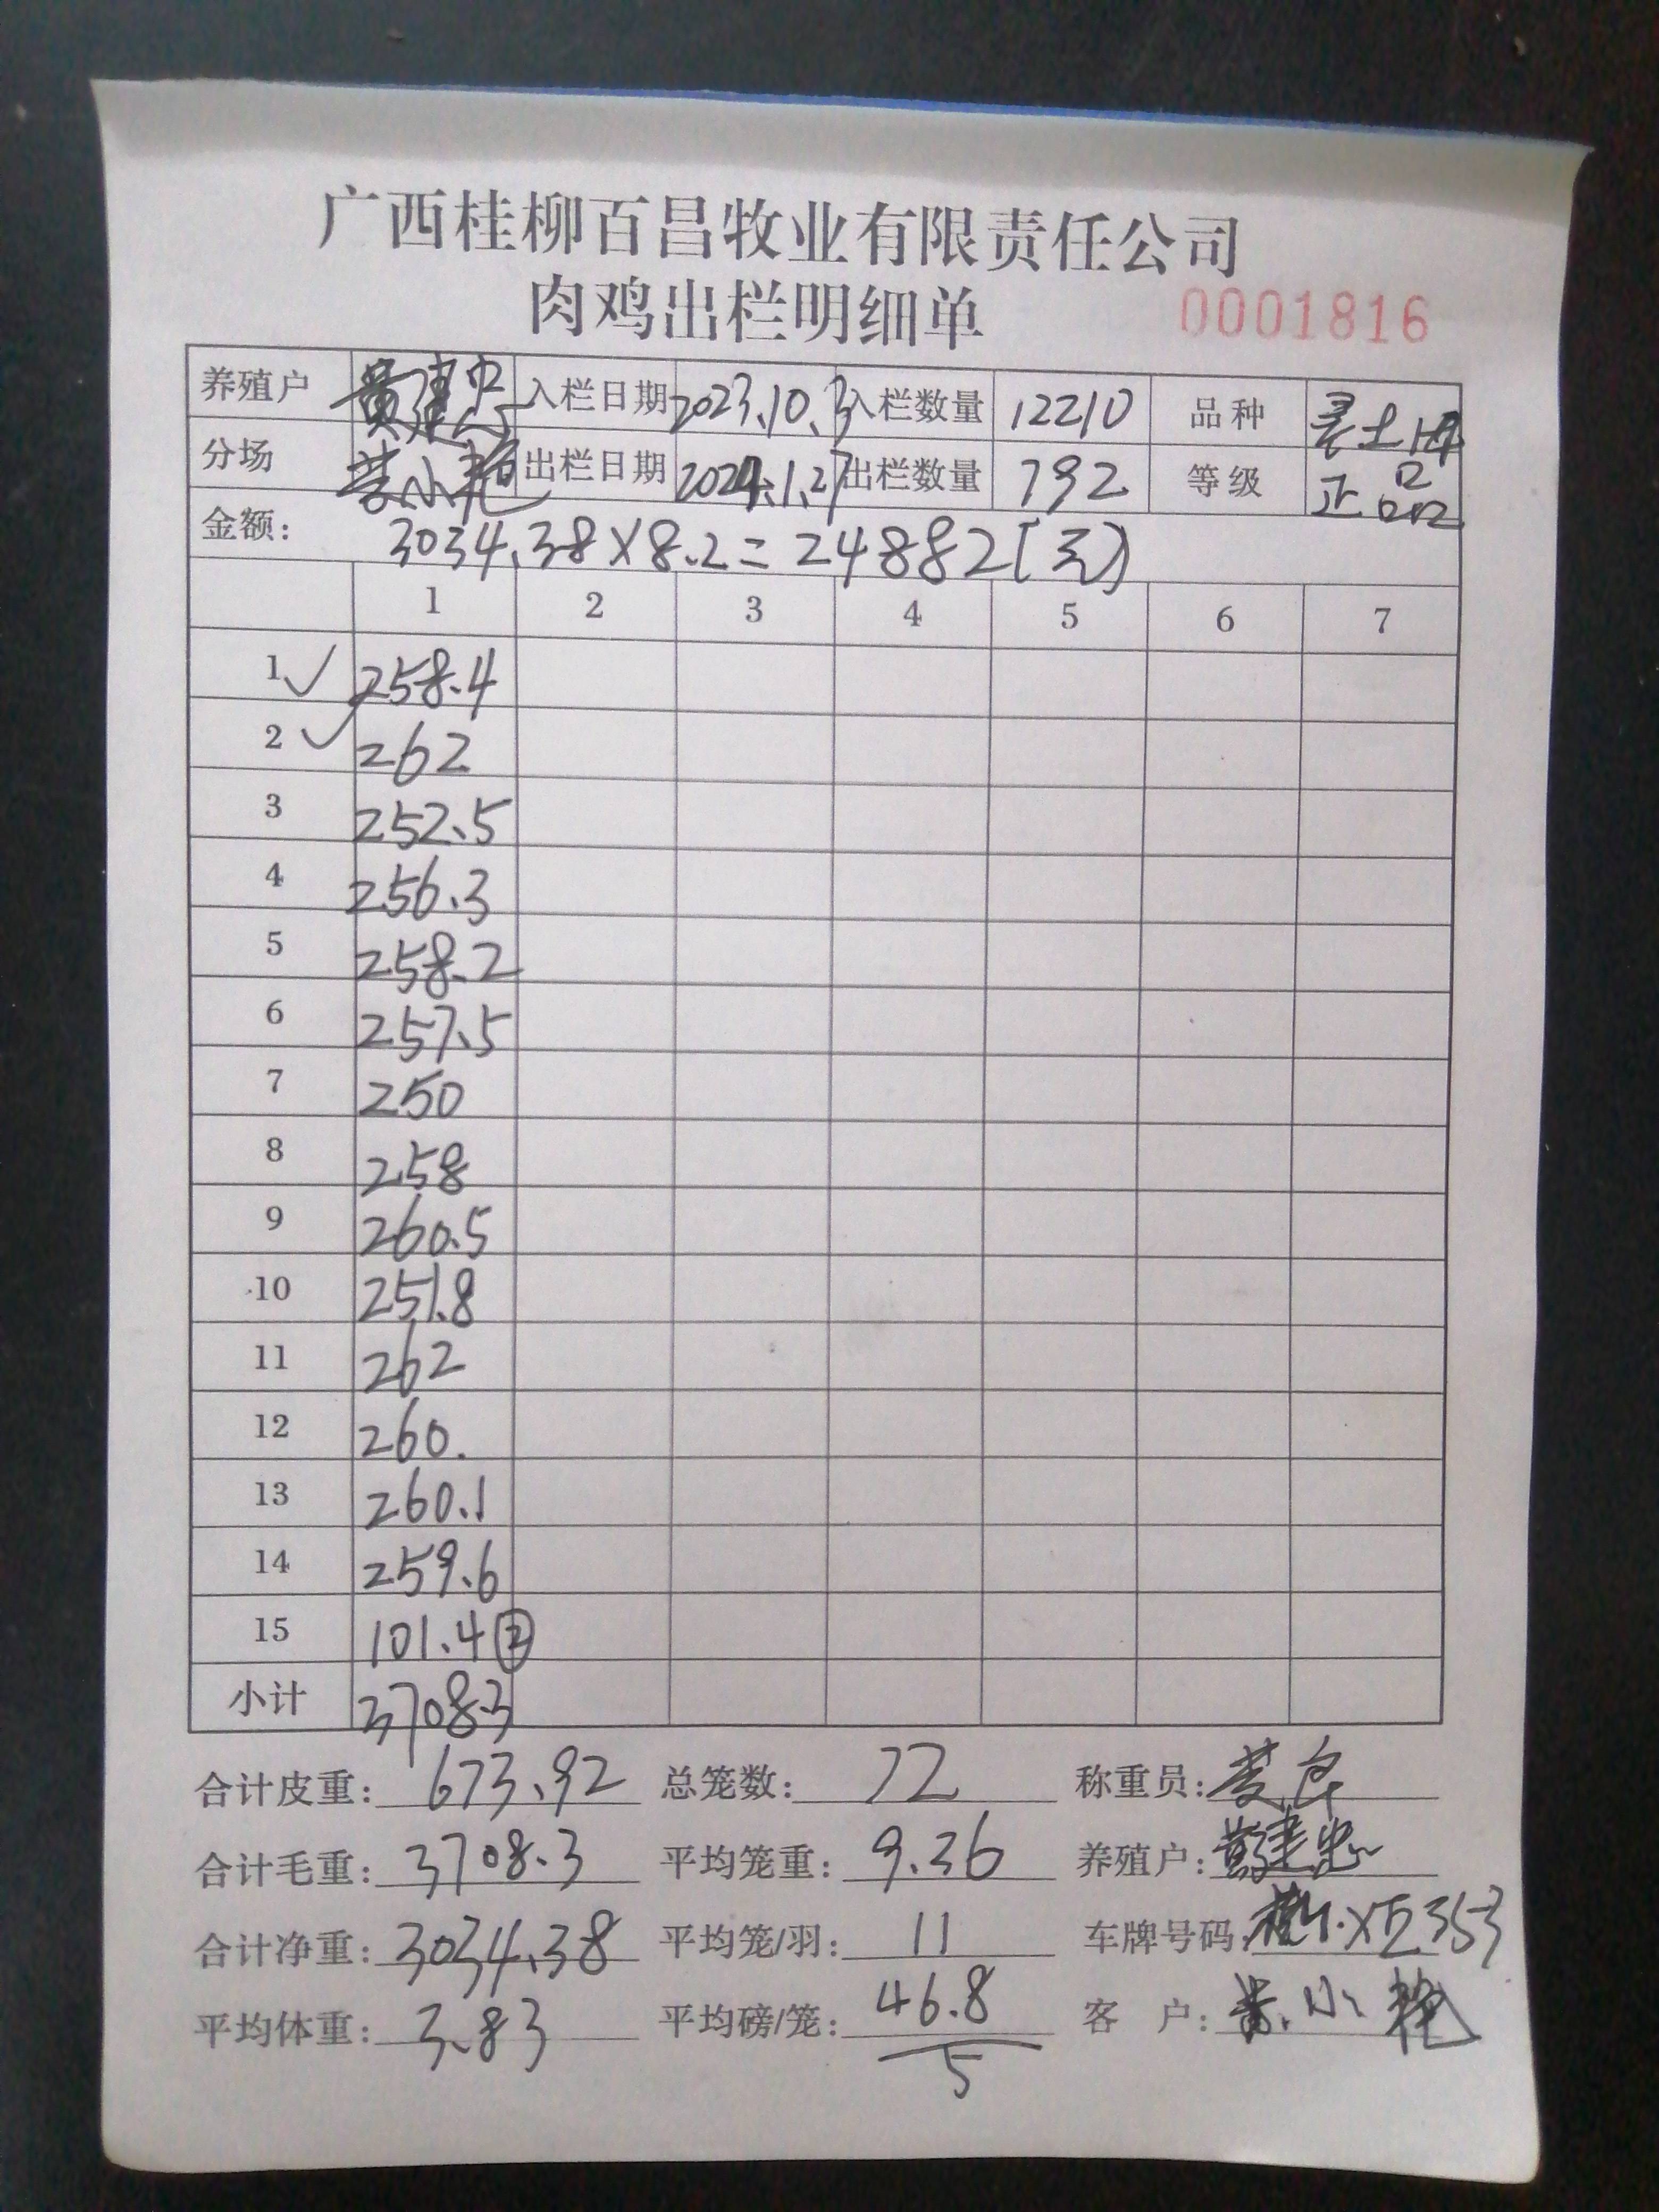 广西桂柳百昌牧业有限责任公司
肉鸡出栏明细单 0001816
养殖户 黄建忠 入栏日期 2023.10.3 入栏数量 12210 品种
分场 出栏日期 2024.1.27 出栏数量 792 等级 正品
金额: 3034.38×8.2=24882(元)
1 2 3 4 5 6 7
1 ✓ 258.4
2 ✓ 262
3 252.5
4 256.3
5 258.2
6 257.5
7 250
8 258
9 260.5
10 251.8
11 262
12 260.
13 260.1
14 259.6
15 101.4 ②
小计 3708.3
合计皮重: 673.92 总笼数: 72 称重员:
合计毛重: 3708.3 平均笼重: 9.36 养殖户: 黄建忠
合计净重: 3034.38 平均笼/羽: 11 车牌号码:
平均体重: 3.83 平均磅/笼: 46.8 客 户:
5